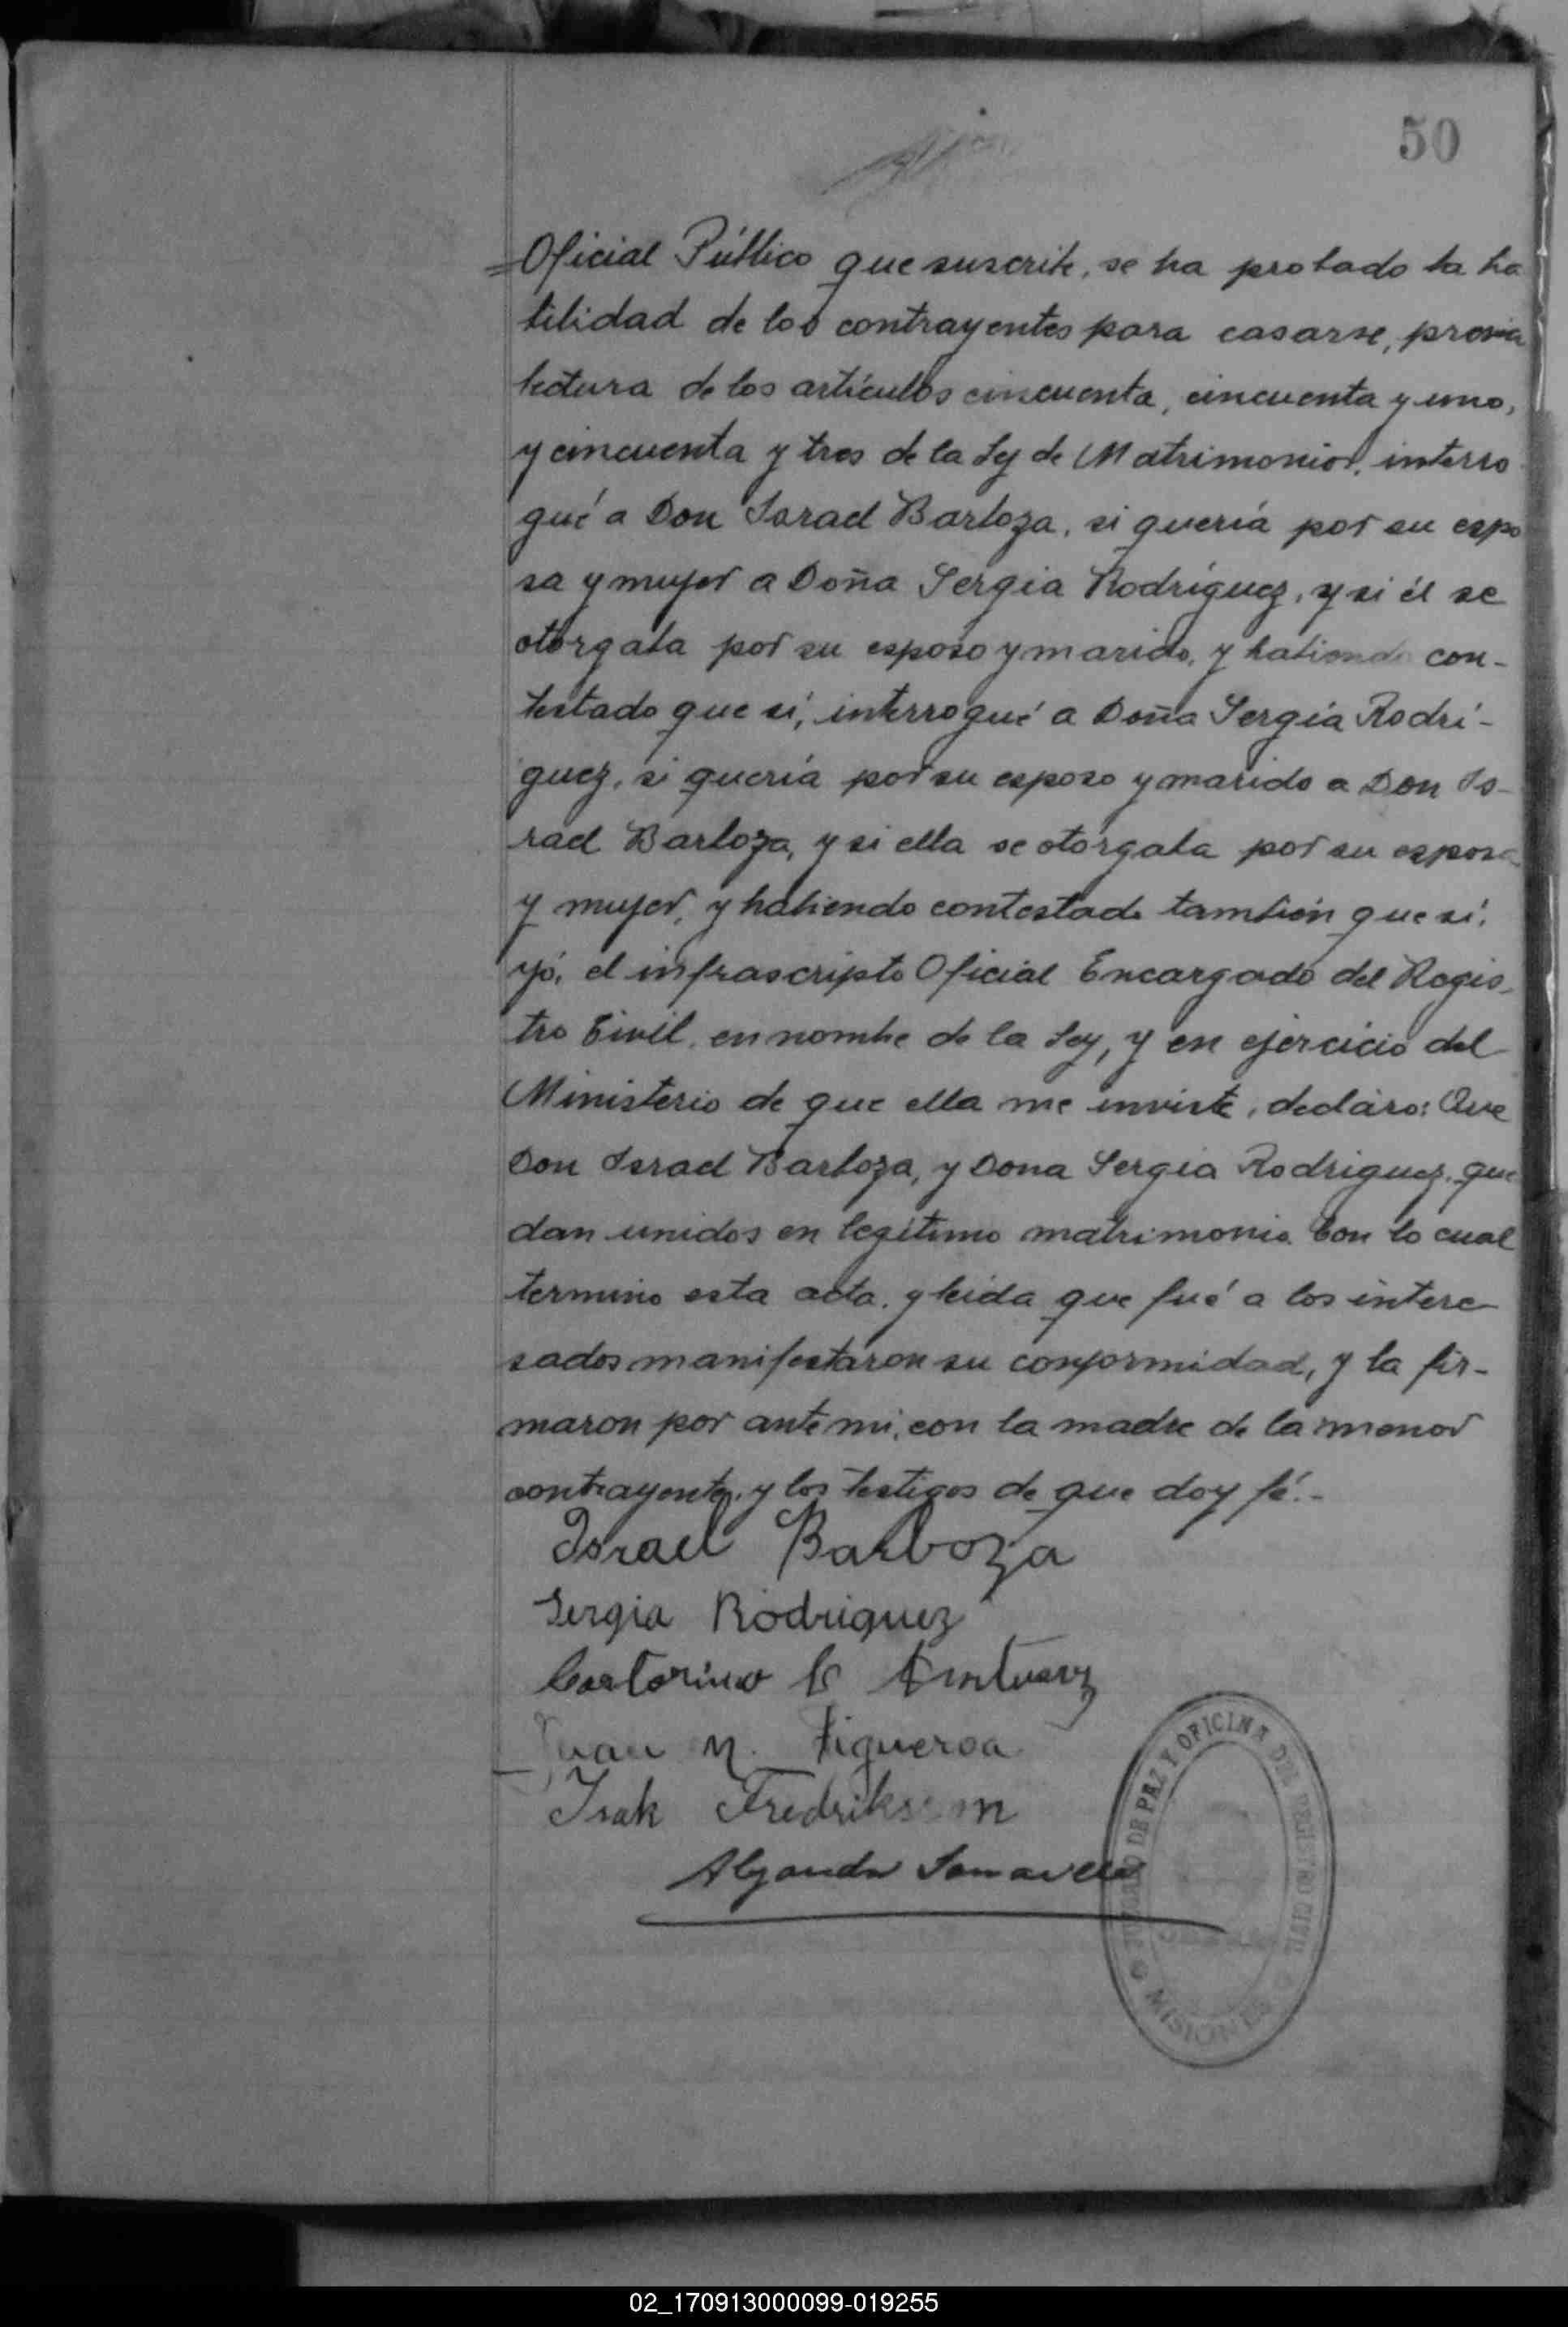 50
=Oficial Público que suscribe, se ha probado la ha
bilidad de los contrayentes para casarse, previa
lectura de los artículos cincuenta, cincuenta y uno,
y cincuenta y tres de la Ley de Matrimonio, interro
gué a Don Israel Barboza, si quería por su espo
sa y mujer a Doña Sergia Rodríguez, y si él se
otorgaba por su esposo y marido, y habiendo con-
testado que sí, interrogué a Doña Sergia Rodrí-
guez, si quería por su esposo y marido a Don Is-
rael Barboza, y si ella se otorgaba por su esposa
y mujer, y habiendo contestado también que sí,
yó, el infrascripto Oficial Encargado del Regis-
tro Civil, en nombre de la Ley, y en ejercicio del
Ministerio de que ella me inviste, declaro: Que
Don Israel Barboza, y Dona Sergia Rodriguez, que
dan unidos en legítimo matrimonio. Con lo cual
termino esta acta, y leida que fué a los intere
sados manifestaron su conformidad, y la fir-
maron por ante mi, con la madre de la menor
contrayente, y los testigos de que doy fé.-
Israel Barboza
Sergia Rodriguez
Juan M. Figueroa
Isak Fredriksson
JUZGADO DE PAZ Y OFICINA DEL REGISTRO CIVIL
MISIONES
02_170913000099-019255